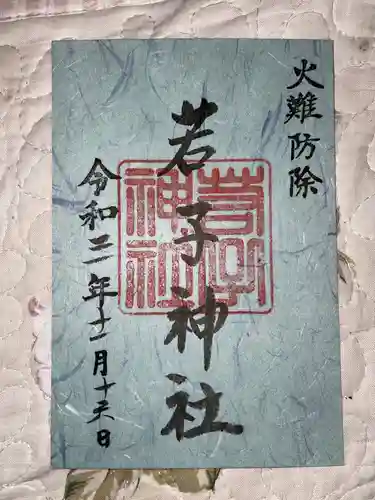 火難防除
若子神社
若子神社
令和二年十一月十六日